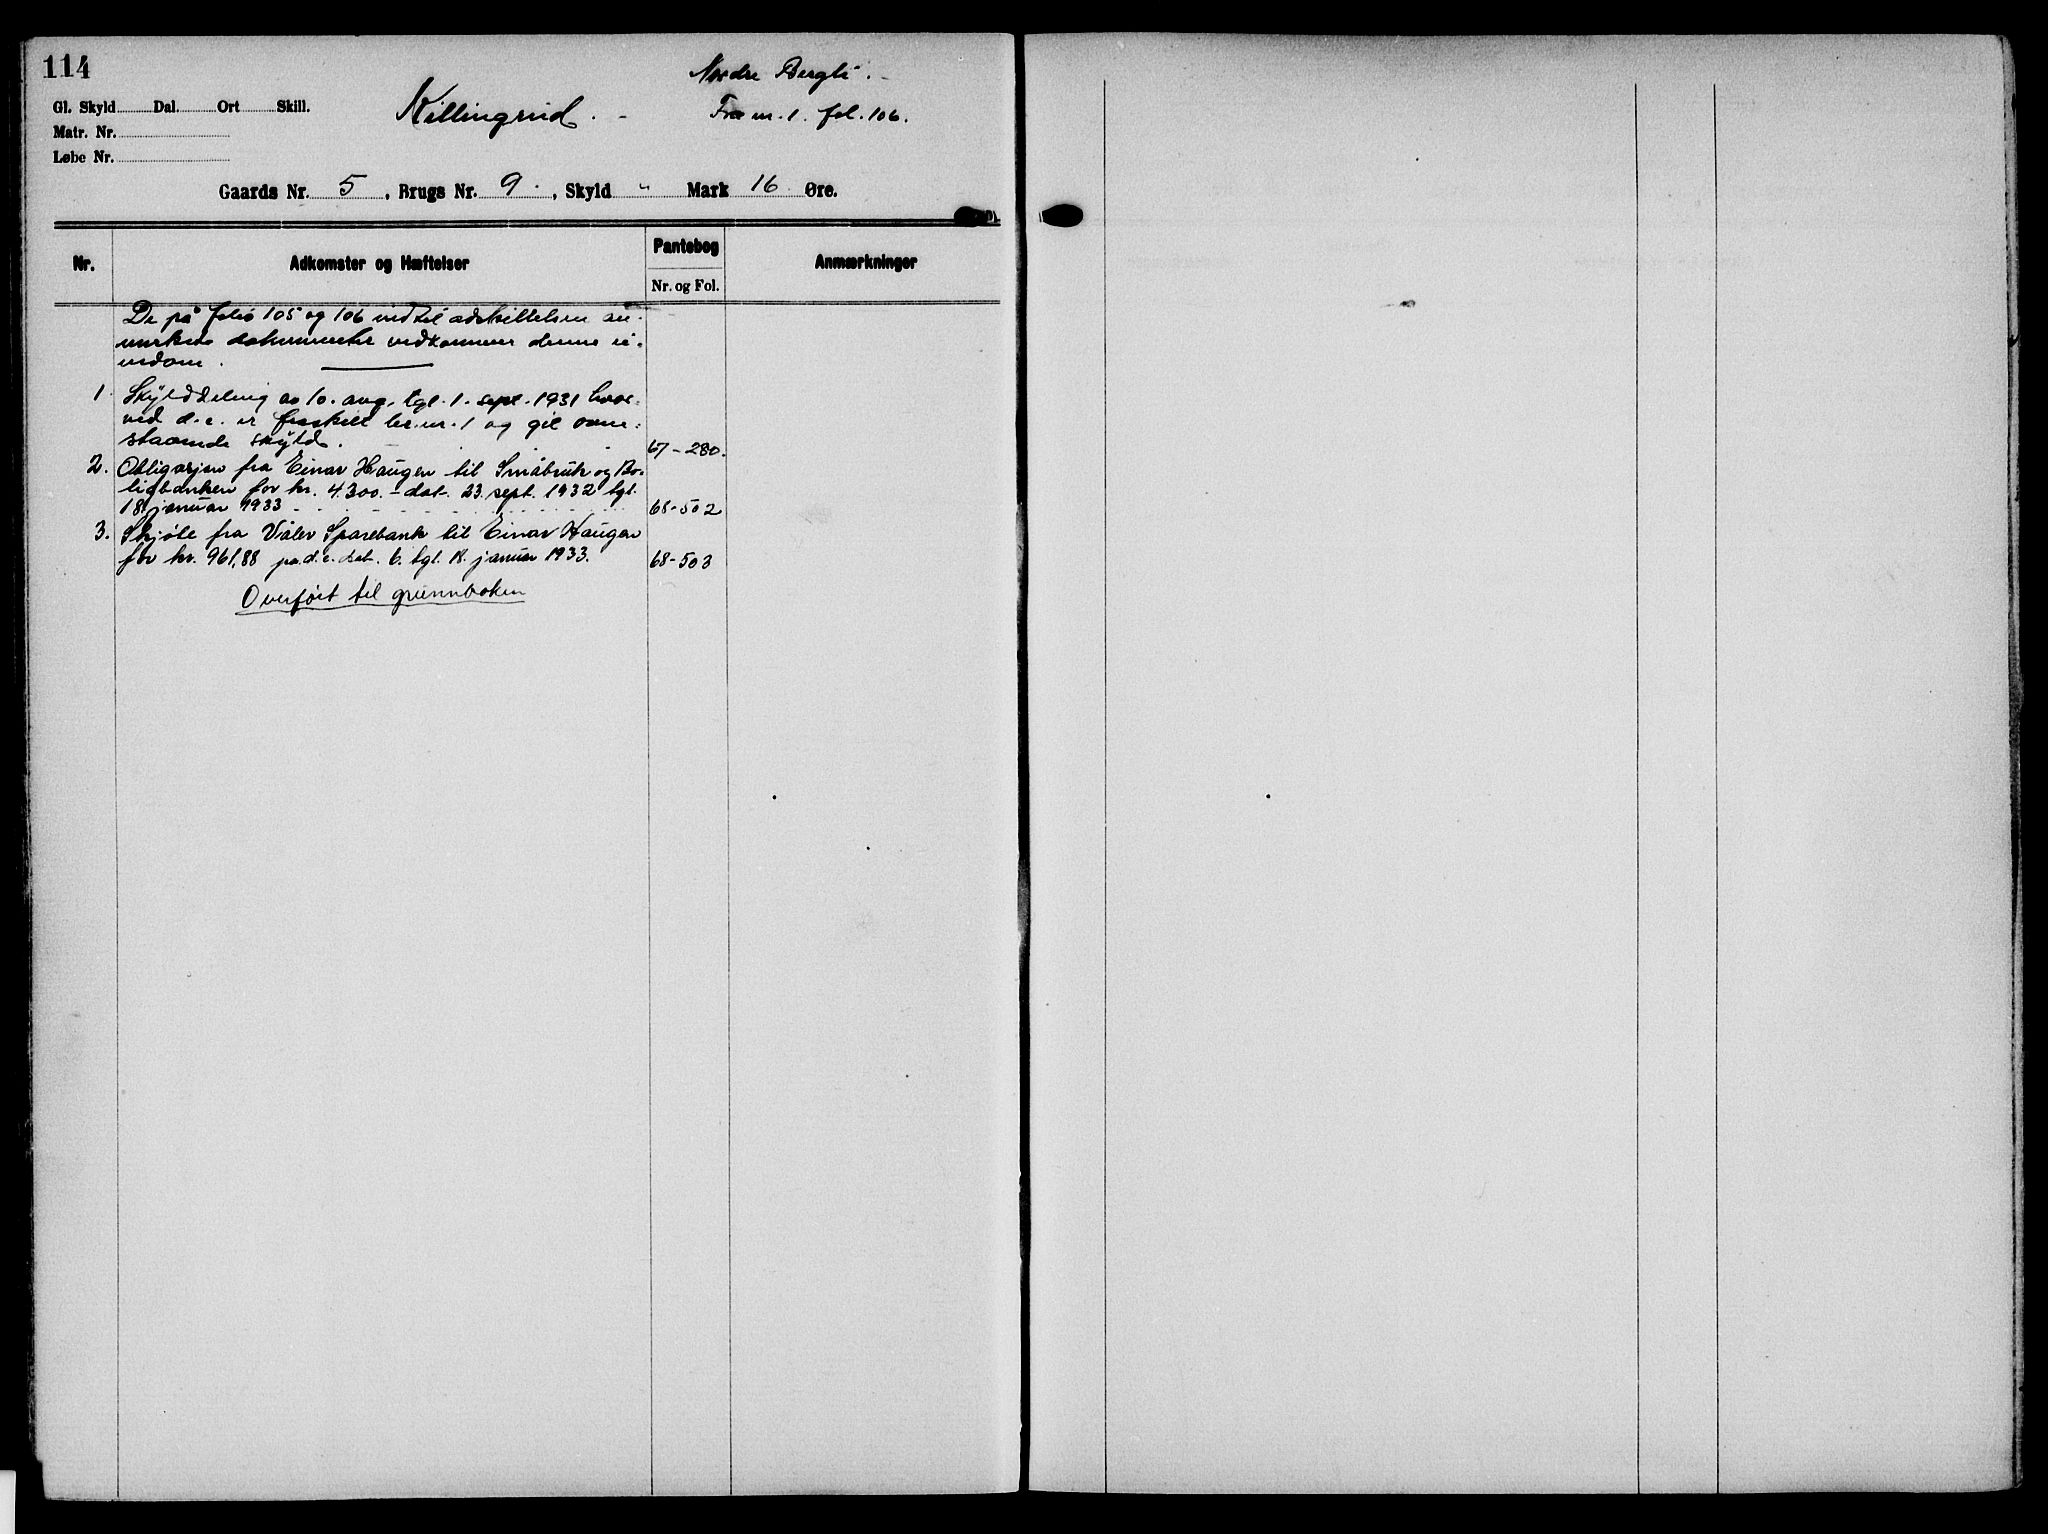 114
Nordre Bergli.
Gl. Skyld Dal. Ort Skill.
Killingrud.
Fra nr. 1. fol. 106.
Matr. Nr.
Løbe Nr.
Gaards Nr. 5, Brugs Nr. 9., Skyld " Mark 16 Øre.
Nr. Adkomster og Hæftelser Pantebog Nr. og Fol. Anmærkninger
De på folio 105 og 106 indtil adskillelsen an-
merkede dokumenter vedkommer denne ei-
endom.
1. Skylddeling av 10. aug. tgl. 1. sept. 1931 hvor-
ved d. e. er fraskilt br. nr. 1 og git oven-
staaende skyld. 67-280.
2. Obligasjon fra Einar Haugen til Småbruk og Bo-
ligbanken for kr. 4.300.- dat. 23. sept. 1932 tgl.
18 januar 1933 68-502
3. Skjøte fra Våler Sparebank til Einar Haugen
for kr. 961,88 på d. e. dat. 6. tgl. 18. januar 1933. 68-503
Overført til grunnboken